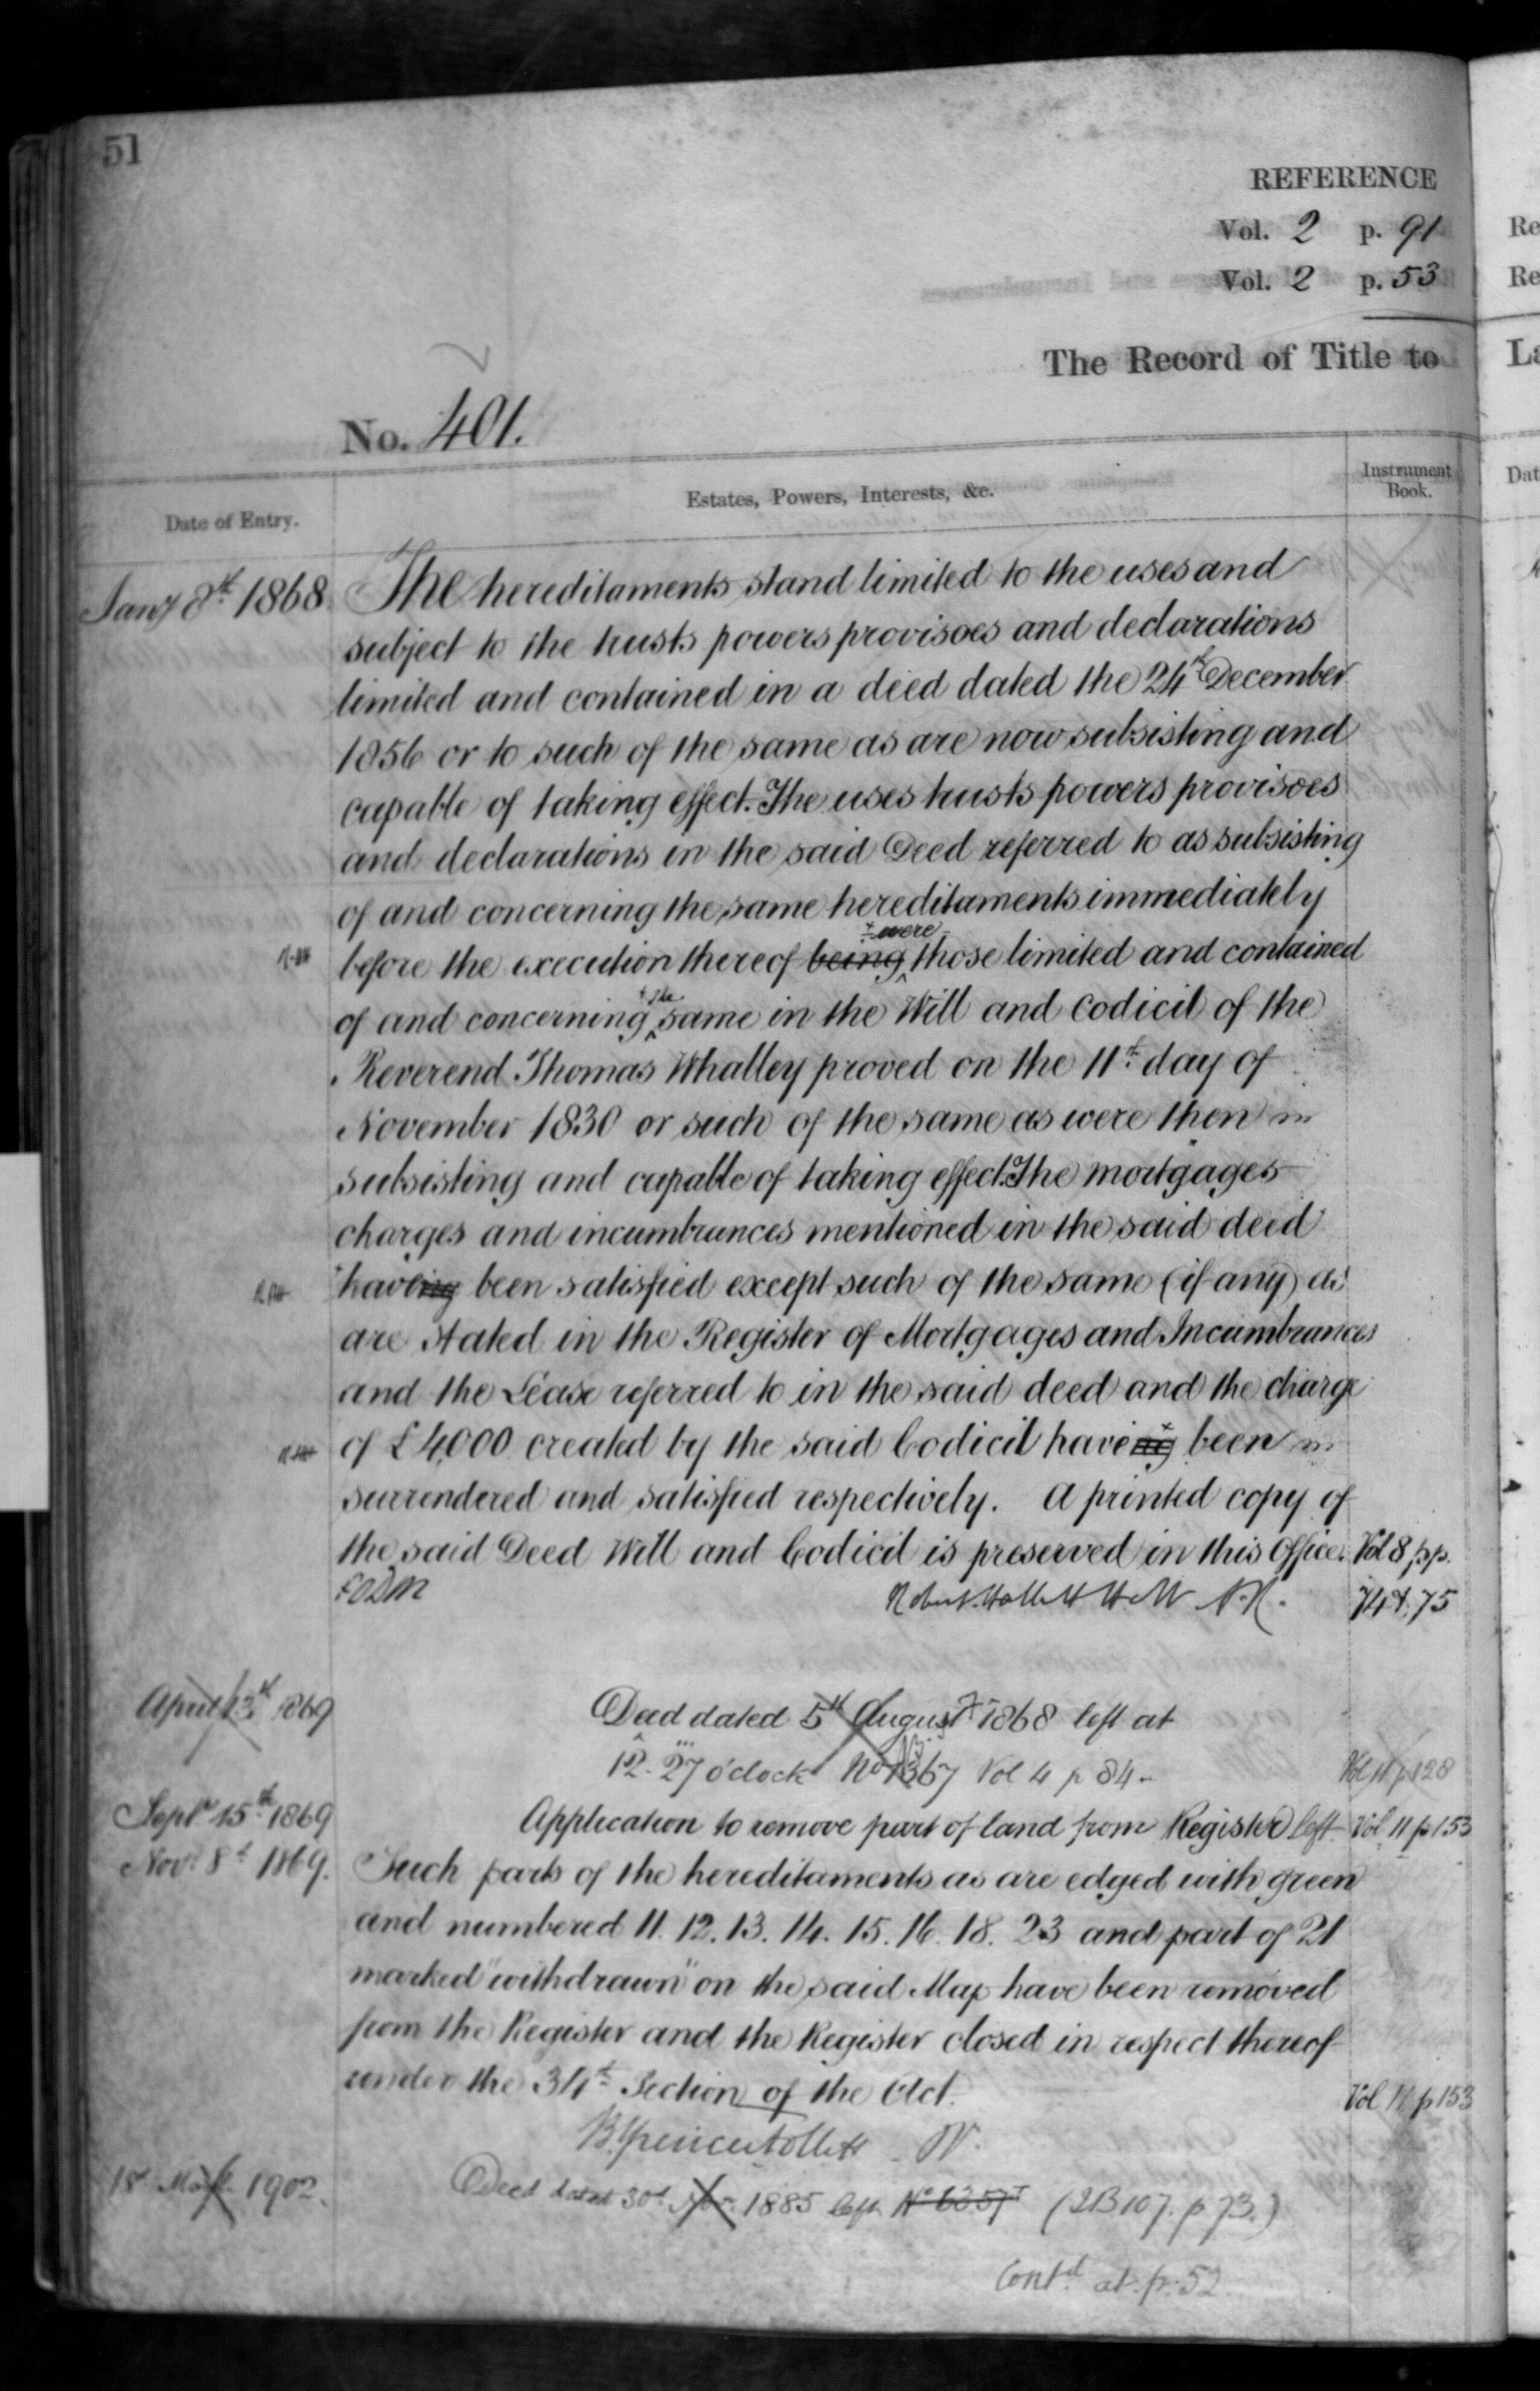 51
REFERENCE
Vol. 2 p. 91
Vol. 2 p. 53
The Record of Title to
No. 401.
Date of Entry.
Estates, Powers, Interests, &c.
Instrument Book.
Jany 8th 1868
The hereditaments stand limited to the uses and
subject to the trusts powers provisoes and declarations
limited and contained in a deed dated the 24th December
1856 or to such of the same as are now subsisting and
capable of taking effect. The uses trusts powers provisoes
and declarations in the said Deed referred to as subsisting
of and concerning the same hereditaments immediately
before the execution thereof being were those limited and contained
of and concerning the same in the Will and Codicil of the
Reverend Thomas Whalley proved on the 11th day of
November 1830 or such of the same as were then
subsisting and capable of taking effect. The mortgages
charges and incumbrances mentioned in the said deed
having been satisfied except such of the same (if any) as
are stated in the Register of Mortgages and Incumbrances
and the Lease referred to in the said deed and the charge
of £4,000 created by the said Codicil haveing been
surrendered and satisfied respectively. A printed copy of
the said Deed Will and Codicil is preserved in this Office. Vol 8 pp.
74 & 75
April 13th 1869 Deed dated 5th August 1868 left at
12. 27 o'clock No 1367 Vol 4 p 84 - Vol 11 p 128
Septr 15th 1869 Application to remove part of land from Register left Vol 11 p 153
Novr 8th 1869. Such parts of the hereditaments as are edged with green
and numbered 11. 12. 13. 14. 15. 16. 18. 23 and part of 21
marked "withdrawn" on the said Map have been removed
from the Register and the Register closed in respect thereof
under the 34th Section of the Act.
Vol 11 p 153
1902. Deed dated 30th 1885 left (2B 107. p 73.)
Contd at p. 52